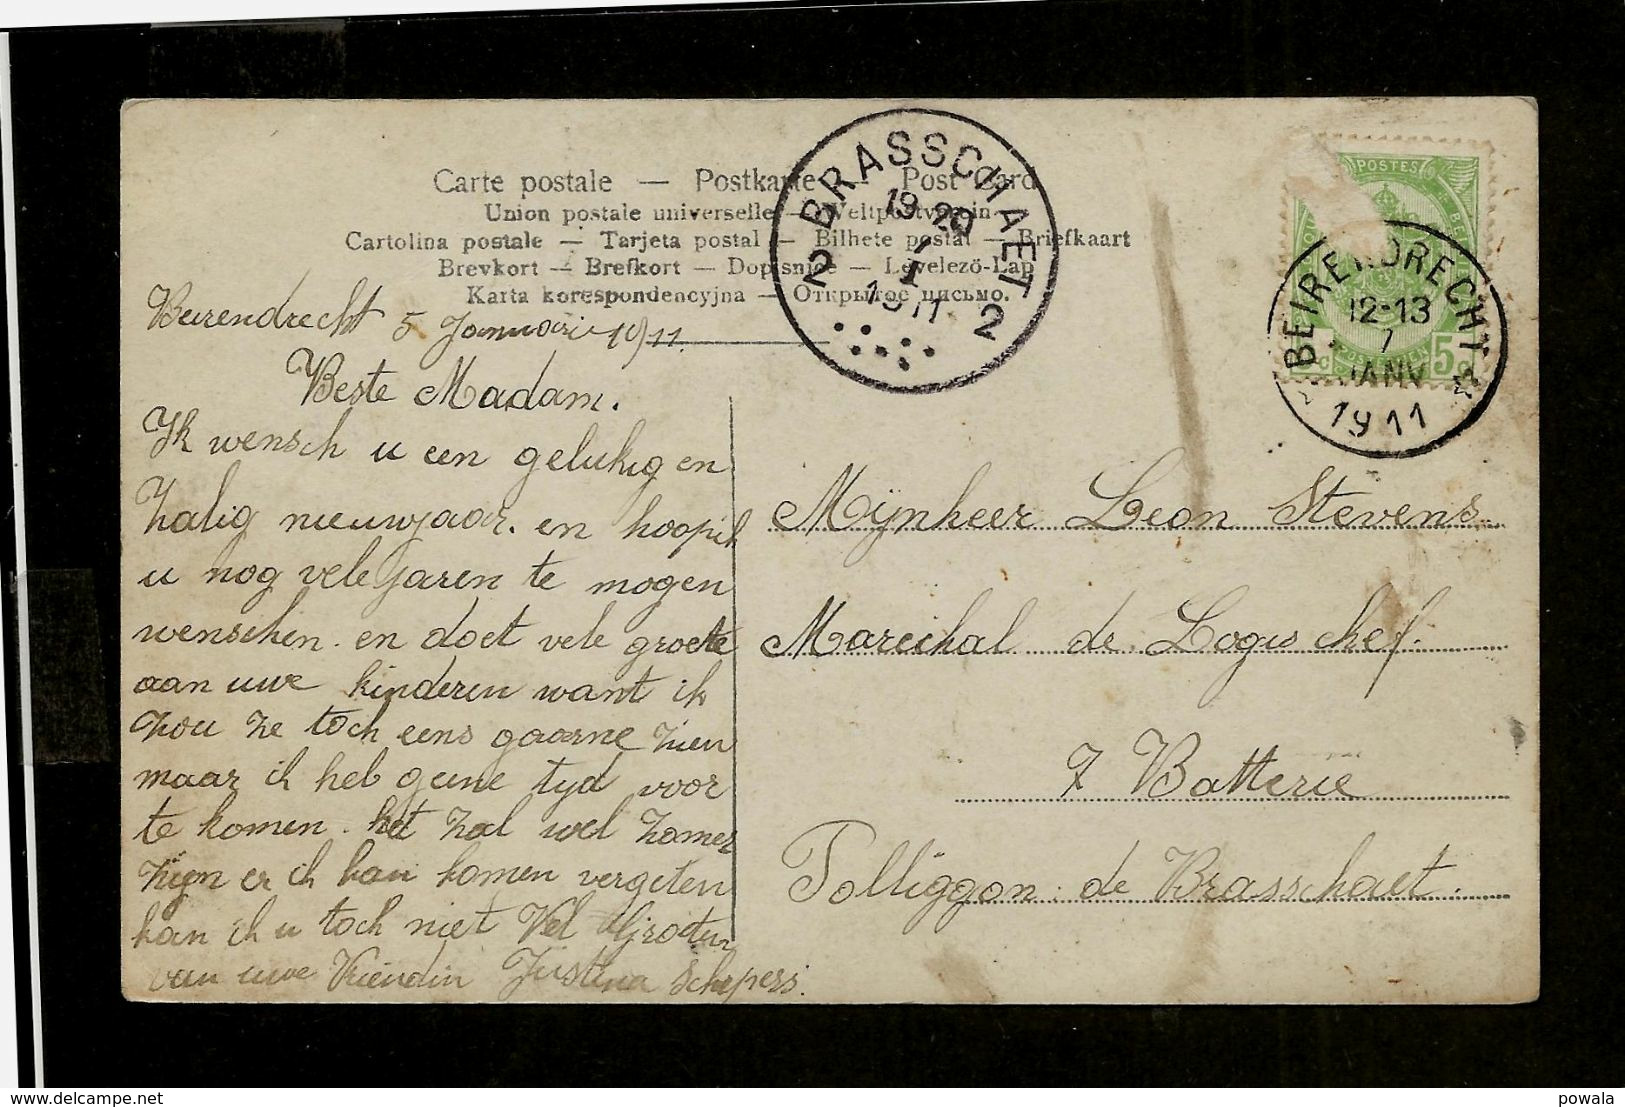 Carte postale — Postkarte — Post Card
Union postale universelle — Weltpostverein
Cartolina postale — Tarjeta postal — Bilhete postal — Briefkaart
Brevkort — Brefkort — Dopisnice — Levelező-Lap
Karta korespondencyjna — Открытое письмо.
BRASSCHAET
19-20
1
1911
2 2
POSTES
5c 5c
BEIRENDRECHT
12-13
7
JANV
1911
Beirendrecht 5 Januari 1911.
Beste Madam.
Ik wensch u een gelukig en
Zalig nieuwjaar. en hoop ik
u nog vele jaren te mogen
wenschen. en doet vele groete
aan uwe kinderen want ik
zou ze toch eens gaarne zien
maar ik heb geene tyd voor
te komen. het zal wel zomer
zijn er ik kan komen vergeten
kan ik u toch niet Vel
van uwe Vriendin Justina Schepers.
Mijnheer Leon Stevens.
Marechal de Logis chef.
7 Batterie
Polliggon: de Brasschaet.
delcampe.net
powala